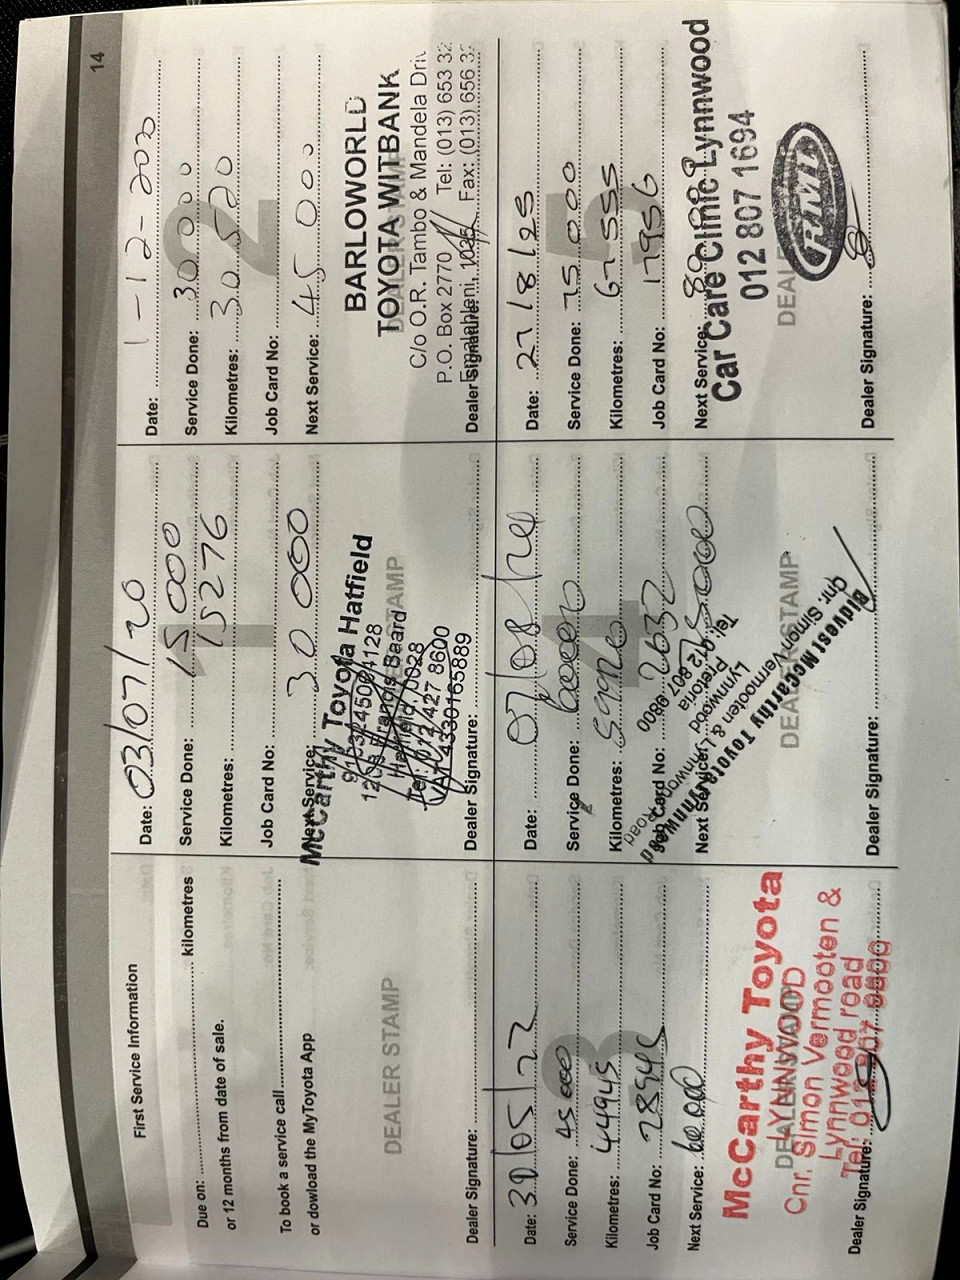 14
First Service Information
Due on: kilometres
or 12 months from date of sale.
To book a service call
or dowload the MyToyota App
DEALER STAMP
Dealer Signature:
1
Date: 03/07/20
Service Done: 15 000
Kilometres: 15276
Job Card No:
Next Service: 30 000
McCarthy Toyota Hatfield
Francis Beard
Hatfield, 0028
Tel: 012/427 8600
VAT 4330165889
Dealer Signature:
2
Date: 1-12-2020
Service Done: 30 000
Kilometres: 30 520
Job Card No:
Next Service: 45 000
BARLOWORLD
TOYOTA WITBANK
C/o O.R. Tambo & Mandela
P.O. Box 2770 Tel: (013) 653
Emalahleni, 1035 Fax: (013) 656
Dealer Signature:
3
Date: 30/05/22
Service Done: 45 000
Kilometres: 44945
Job Card No:
Next Service: 60 000
McCarthy Toyota
LYNNWOOD
Cnr. Simon Vermooten &
Lynnwood road
Dealer Signature:
4
Date:
Service Done: 60000
Kilometres:
Job Card No: 2632
Next Service: 75000
Bidvest McCarthy Toyota Lynnwood
Cnr. Simon Vermooten & Lynnwood Road
Lynnwood
Pretoria
Tel: 012 807 9800
DEALER STAMP
Dealer Signature:
5
Date: 27/8/25
Service Done: 75 000
Kilometres: 67 555
Job Card No: 17956
Next Service:
Car Care Clinic Lynnwood
012 807 1694
RMI
Dealer Signature: